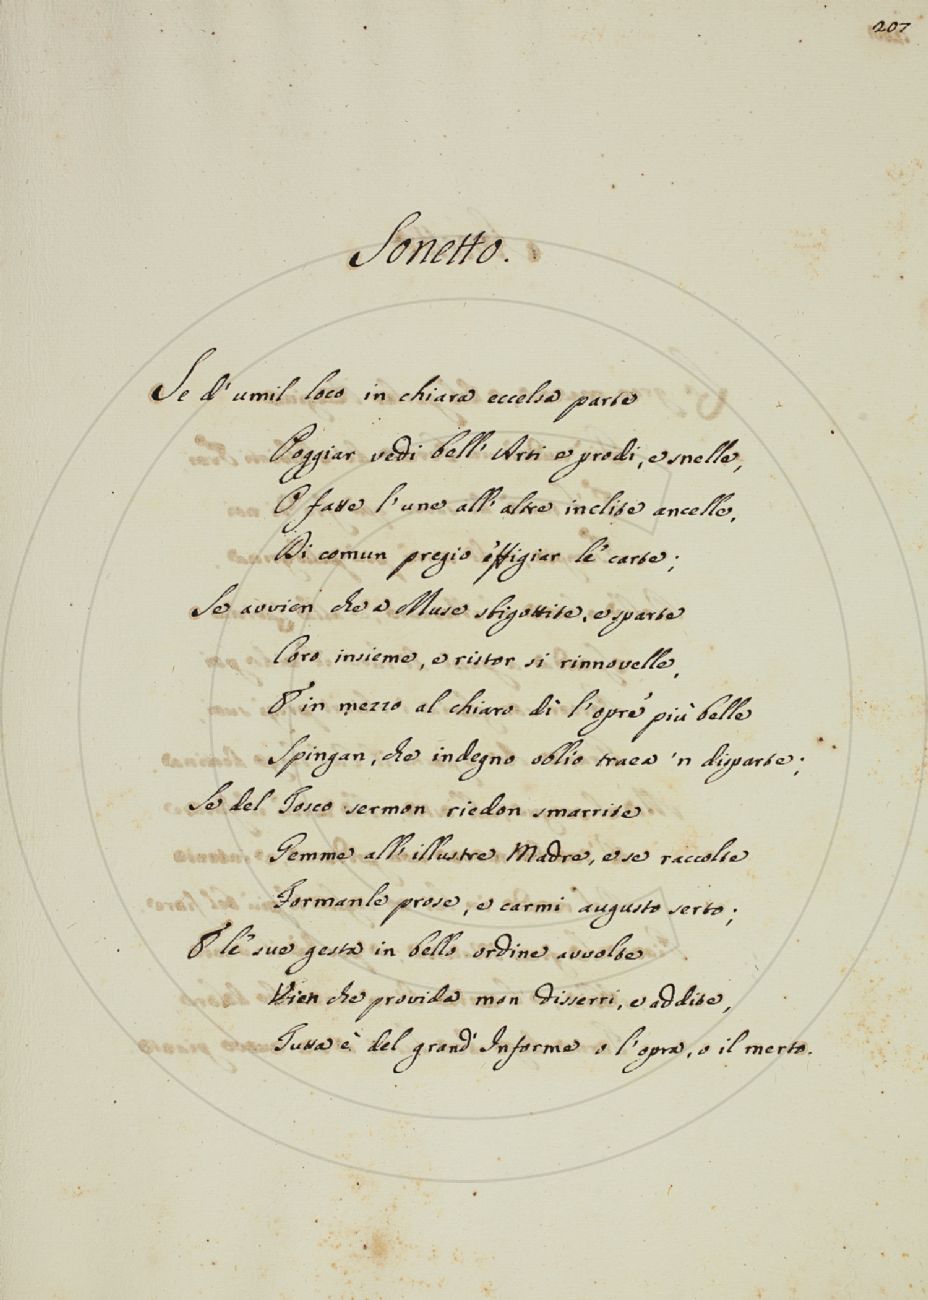 207
Sonetto.
Se d'umil loco in chiara eccelsa parte
Poggiar vedi bell'Arti e prodi, e snelle,
O fatte l'une all'altre inclite ancelle,
Di comun pregio effigiar le carte;
Se avvien che a Muse sbigottite, e sparte
Coro insieme, e ristor si rinnovelle,
E in mezzo al chiaro dì l'opre più belle
Spingan, che indegno oblio traea 'n disparte;
Se del Tosco sermon riedon smarrite
Gemme all'illustre Madre, e se raccolte
Formanle prose, e carmi augusto serto;
E le sue gesta in bello ordine avvolte
Vien che provida man disserri, e addite,
Tutta è del grand' Informe o l'opra, o il merto.